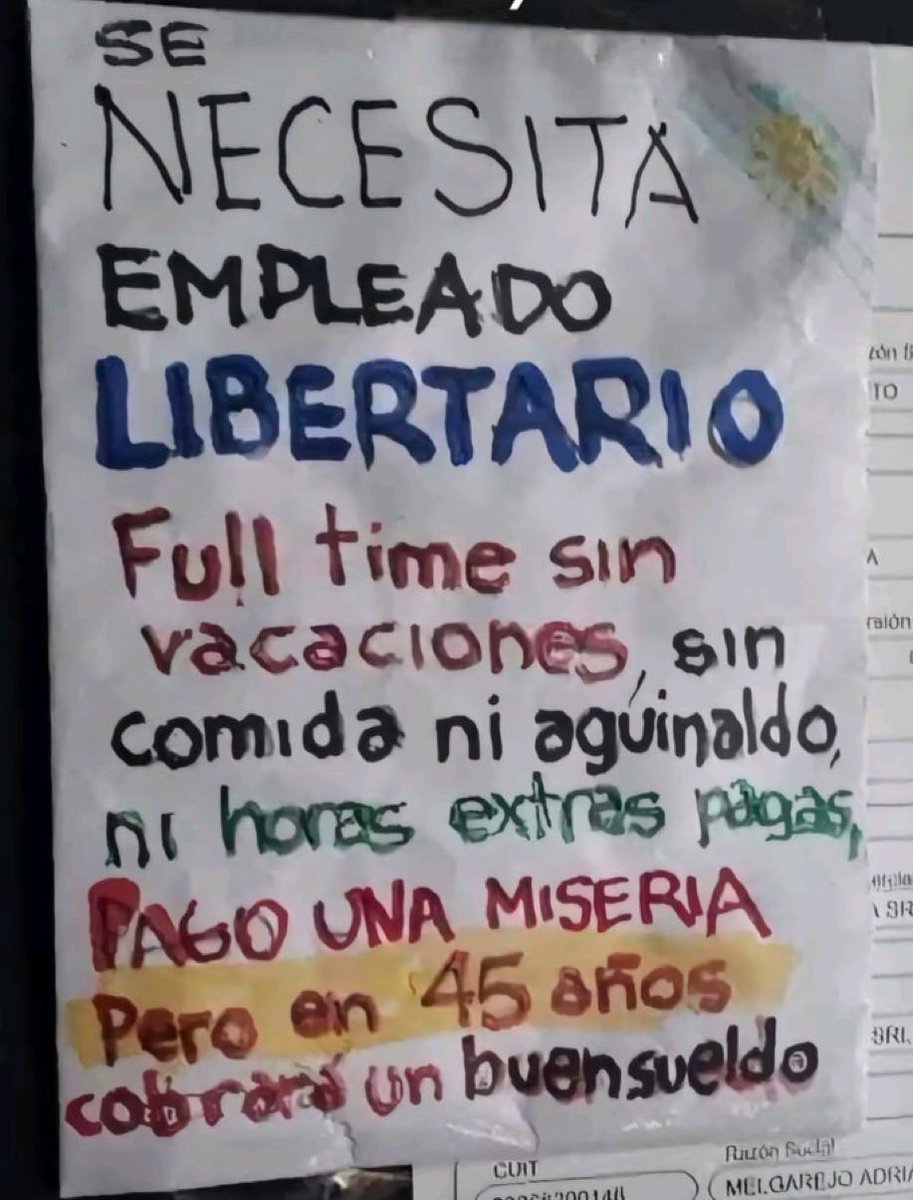 SE
NECESITA
EMPLEADO
LIBERTARIO
Full time sin
vacaciones, sin
comida ni aguinaldo,
ni horas extras pagas,
PAGO UNA MISERIA
Pero en 45 años
cobrará un buen sueldo
TO
A
SRL
CUIT
Razón Social
MELGAREJO ADRIA